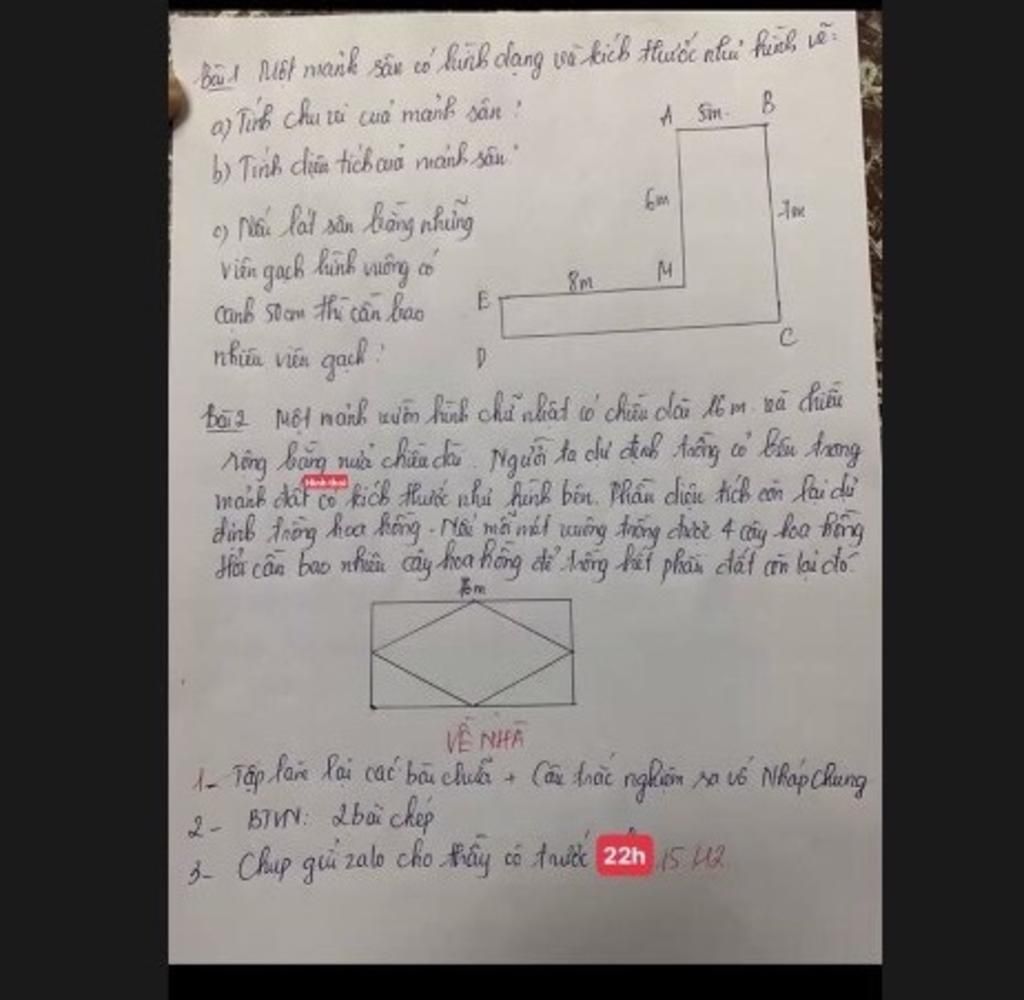 Bài 1 Một mảnh sân có hình dạng và kích thước như hình vẽ:
a) Tính chu vi của mảnh sân?
b) Tính diện tích của mảnh sân?
c) Nếu lát sân bằng những
viên gạch hình vuông có
cạnh 50cm thì cần bao
nhiêu viên gạch?
A 5m B
6m 7m
E 8m M
D C
Bài 2 Một mảnh vườn hình chữ nhật có chiều dài 16m và chiều
rộng bằng nửa chiều dài. Người ta dự định trồng cỏ bên trong
Hình thoi
mảnh đất có kích thước như hình bên. Phần diện tích còn lại dự
định trồng hoa hồng. Nếu mỗi mét vuông trồng được 4 cây hoa hồng
Hỏi cần bao nhiêu cây hoa hồng để trồng hết phần đất còn lại đó.
16m
VỀ NHÀ
1- Tập làm lại các bài chữa + Câu trắc nghiệm ra vở Nháp Chung
2- BTVN: 2 bài chép
3- Chụp gửi zalo cho thầy cô trước 22h 15